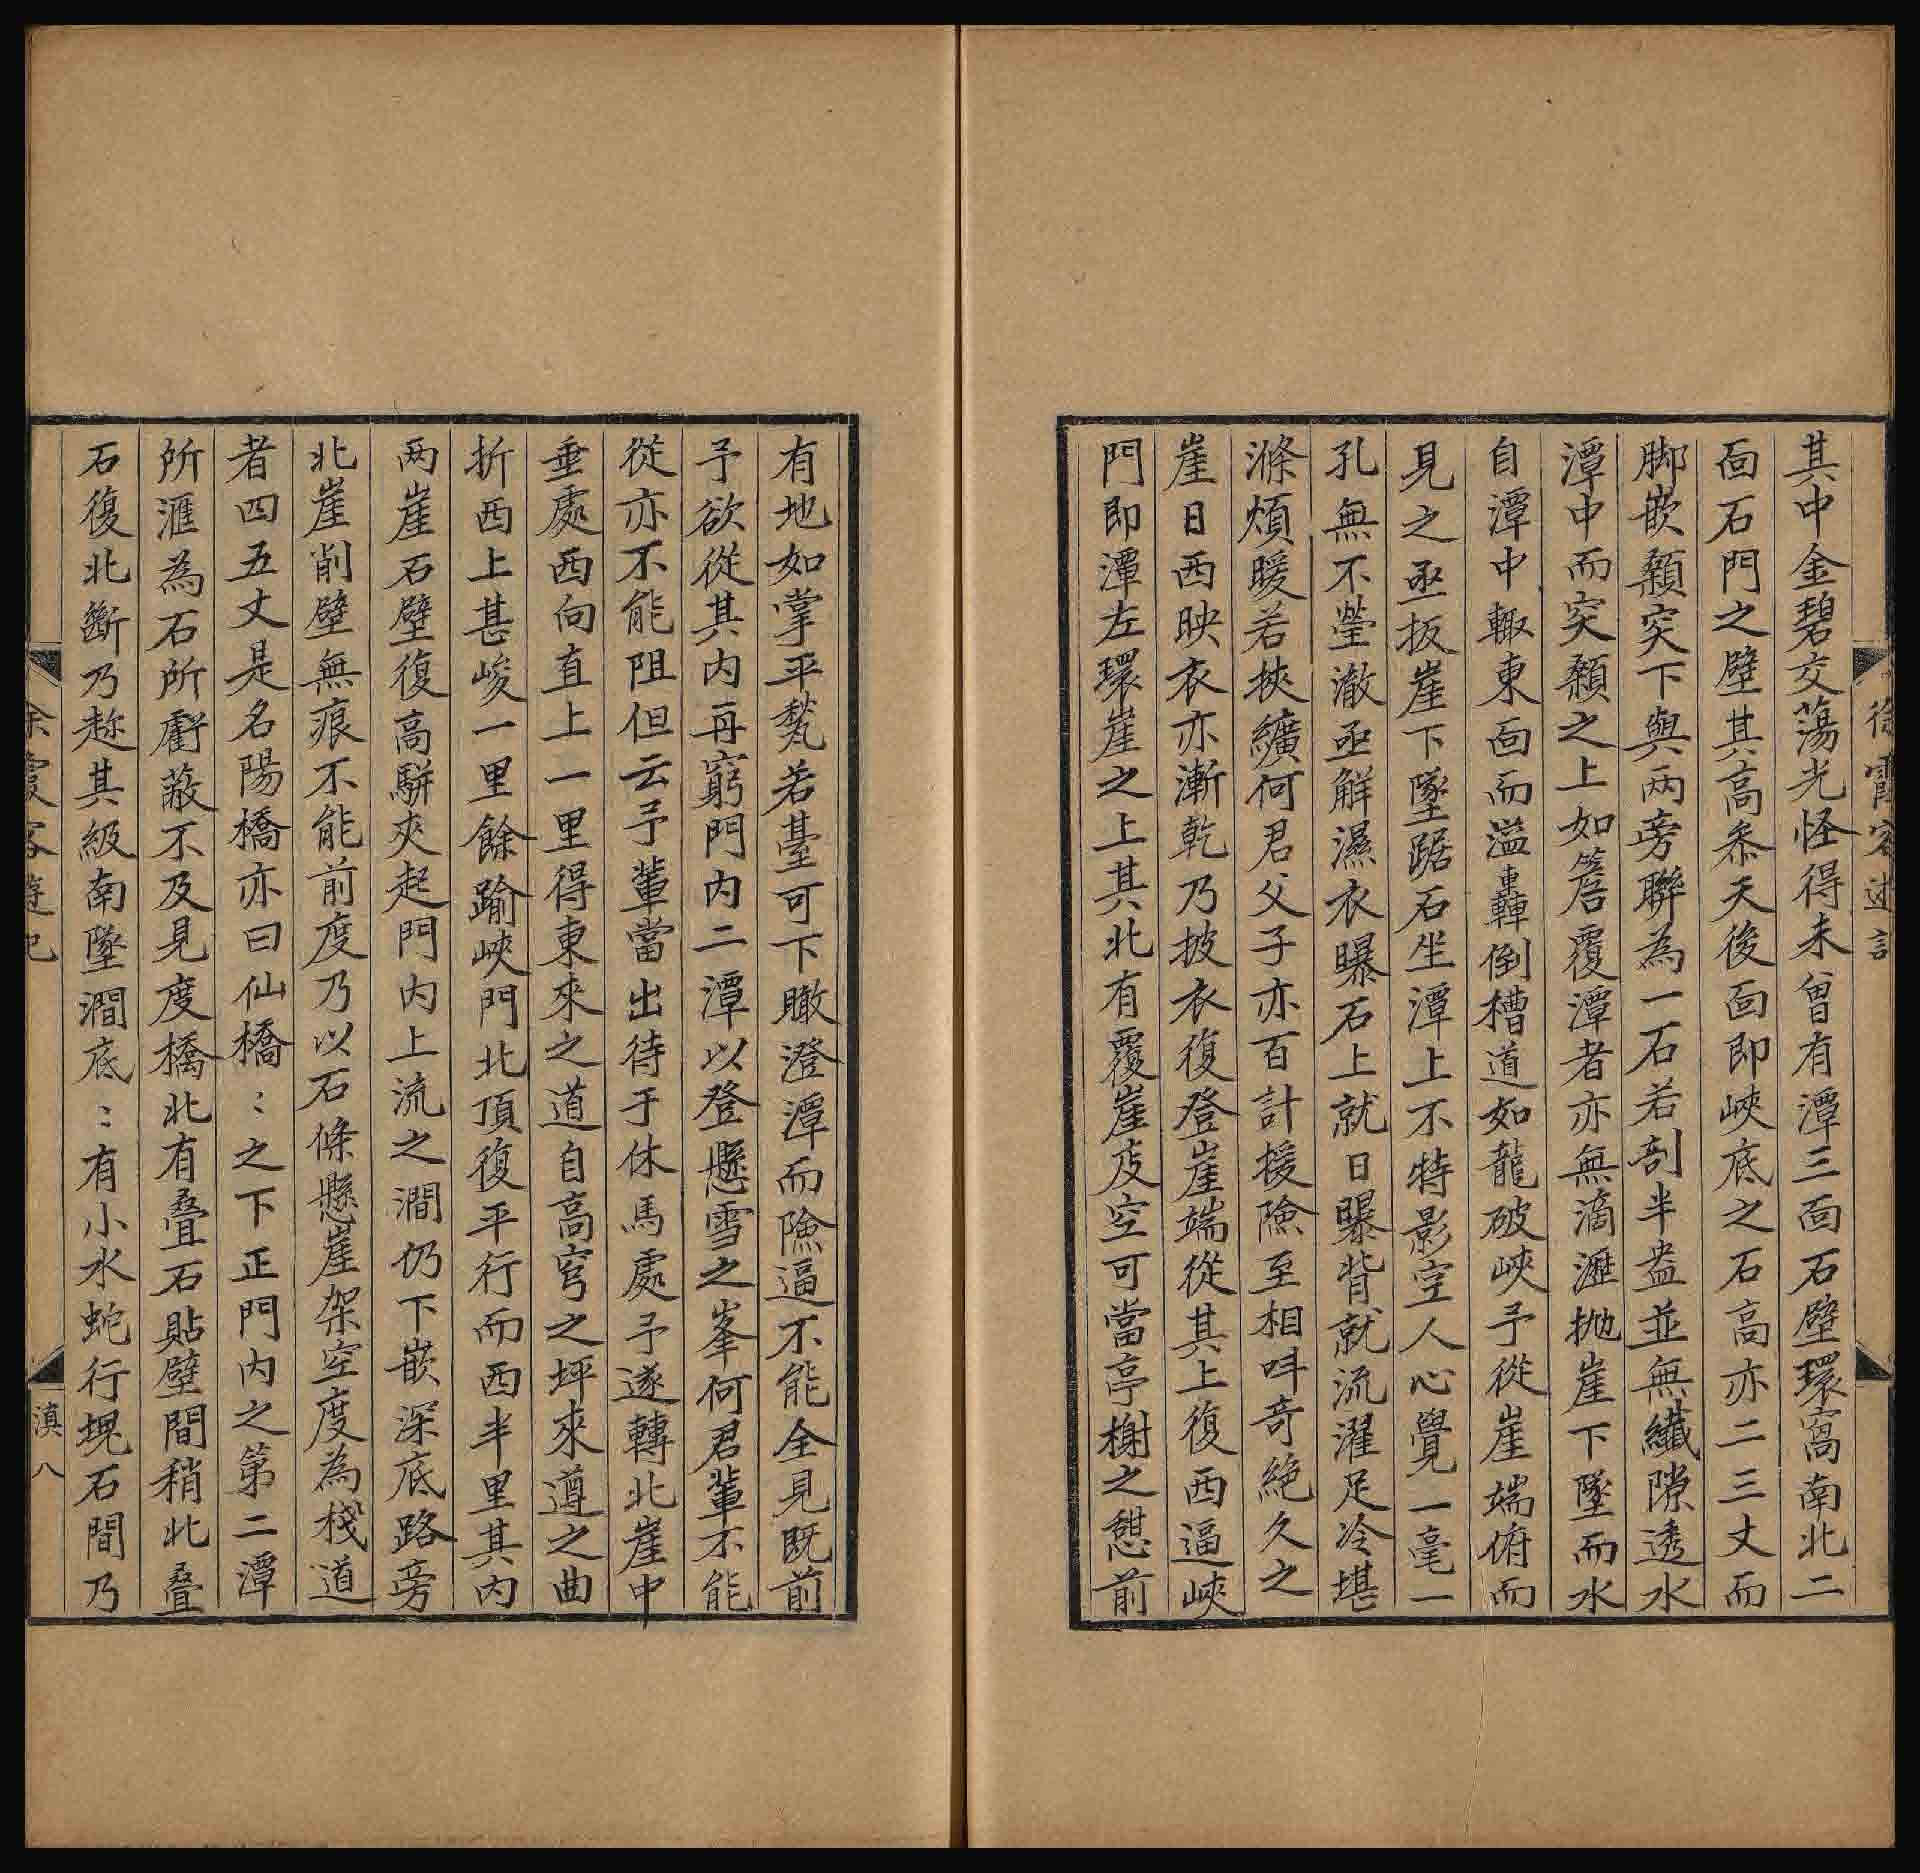 其中金碧交蕩光怪得未曾有潭三面石壁環窩南北二
面石門之壁其高叅天後面即峽底之石高亦二三丈而
脚嵌顙突下與两旁聯為一石若剖半盎並無纖隙透水
潭中而突顙之上如簷覆潭者亦無滴瀝抛崖下墜而水
自潭中輙東面而溢轟倒槽道如龍破峽予從崖端俯而
見之亟扳崖下墜踞石坐潭上不特影空人心覺一毫一
孔無不瑩澈亟解濕衣曝石上就日曝背就流濯足冷堪
滌煩暖若挾纊何君父子亦百計援險至相呌竒絶久之
崖日西映衣亦漸乾乃披衣復登崖端從其上復西逼峽
門即潭左環崖之上其北有覆崖庋空可當亭榭之憇前
有地如掌平甃若臺可下瞰澄潭而險逼不能全見既前
予欲從其内再窮門内二潭以登懸雪之峯何君輩不能
從亦不能阻但云予輩當出待于休馬處予遂轉北崖中
垂處西向直上一里得東來之道自高穹之坪來遵之曲
折西上甚峻一里餘踰峽門北頂復平行而西半里其内
两崖石壁復高駢夾起門内上流之澗仍下嵌深底路旁
北崖削壁無痕不能前度乃以石條懸崖架空度為棧道
者四五丈是名陽橋亦曰仙橋〻之下正門内之第二潭
所滙為石所虧蔽不及見度橋北有叠石貼壁間稍北叠
石復北斷乃趂其級南墜澗底〻有小水蛇行塊石間乃
徐霞客遊記
滇八